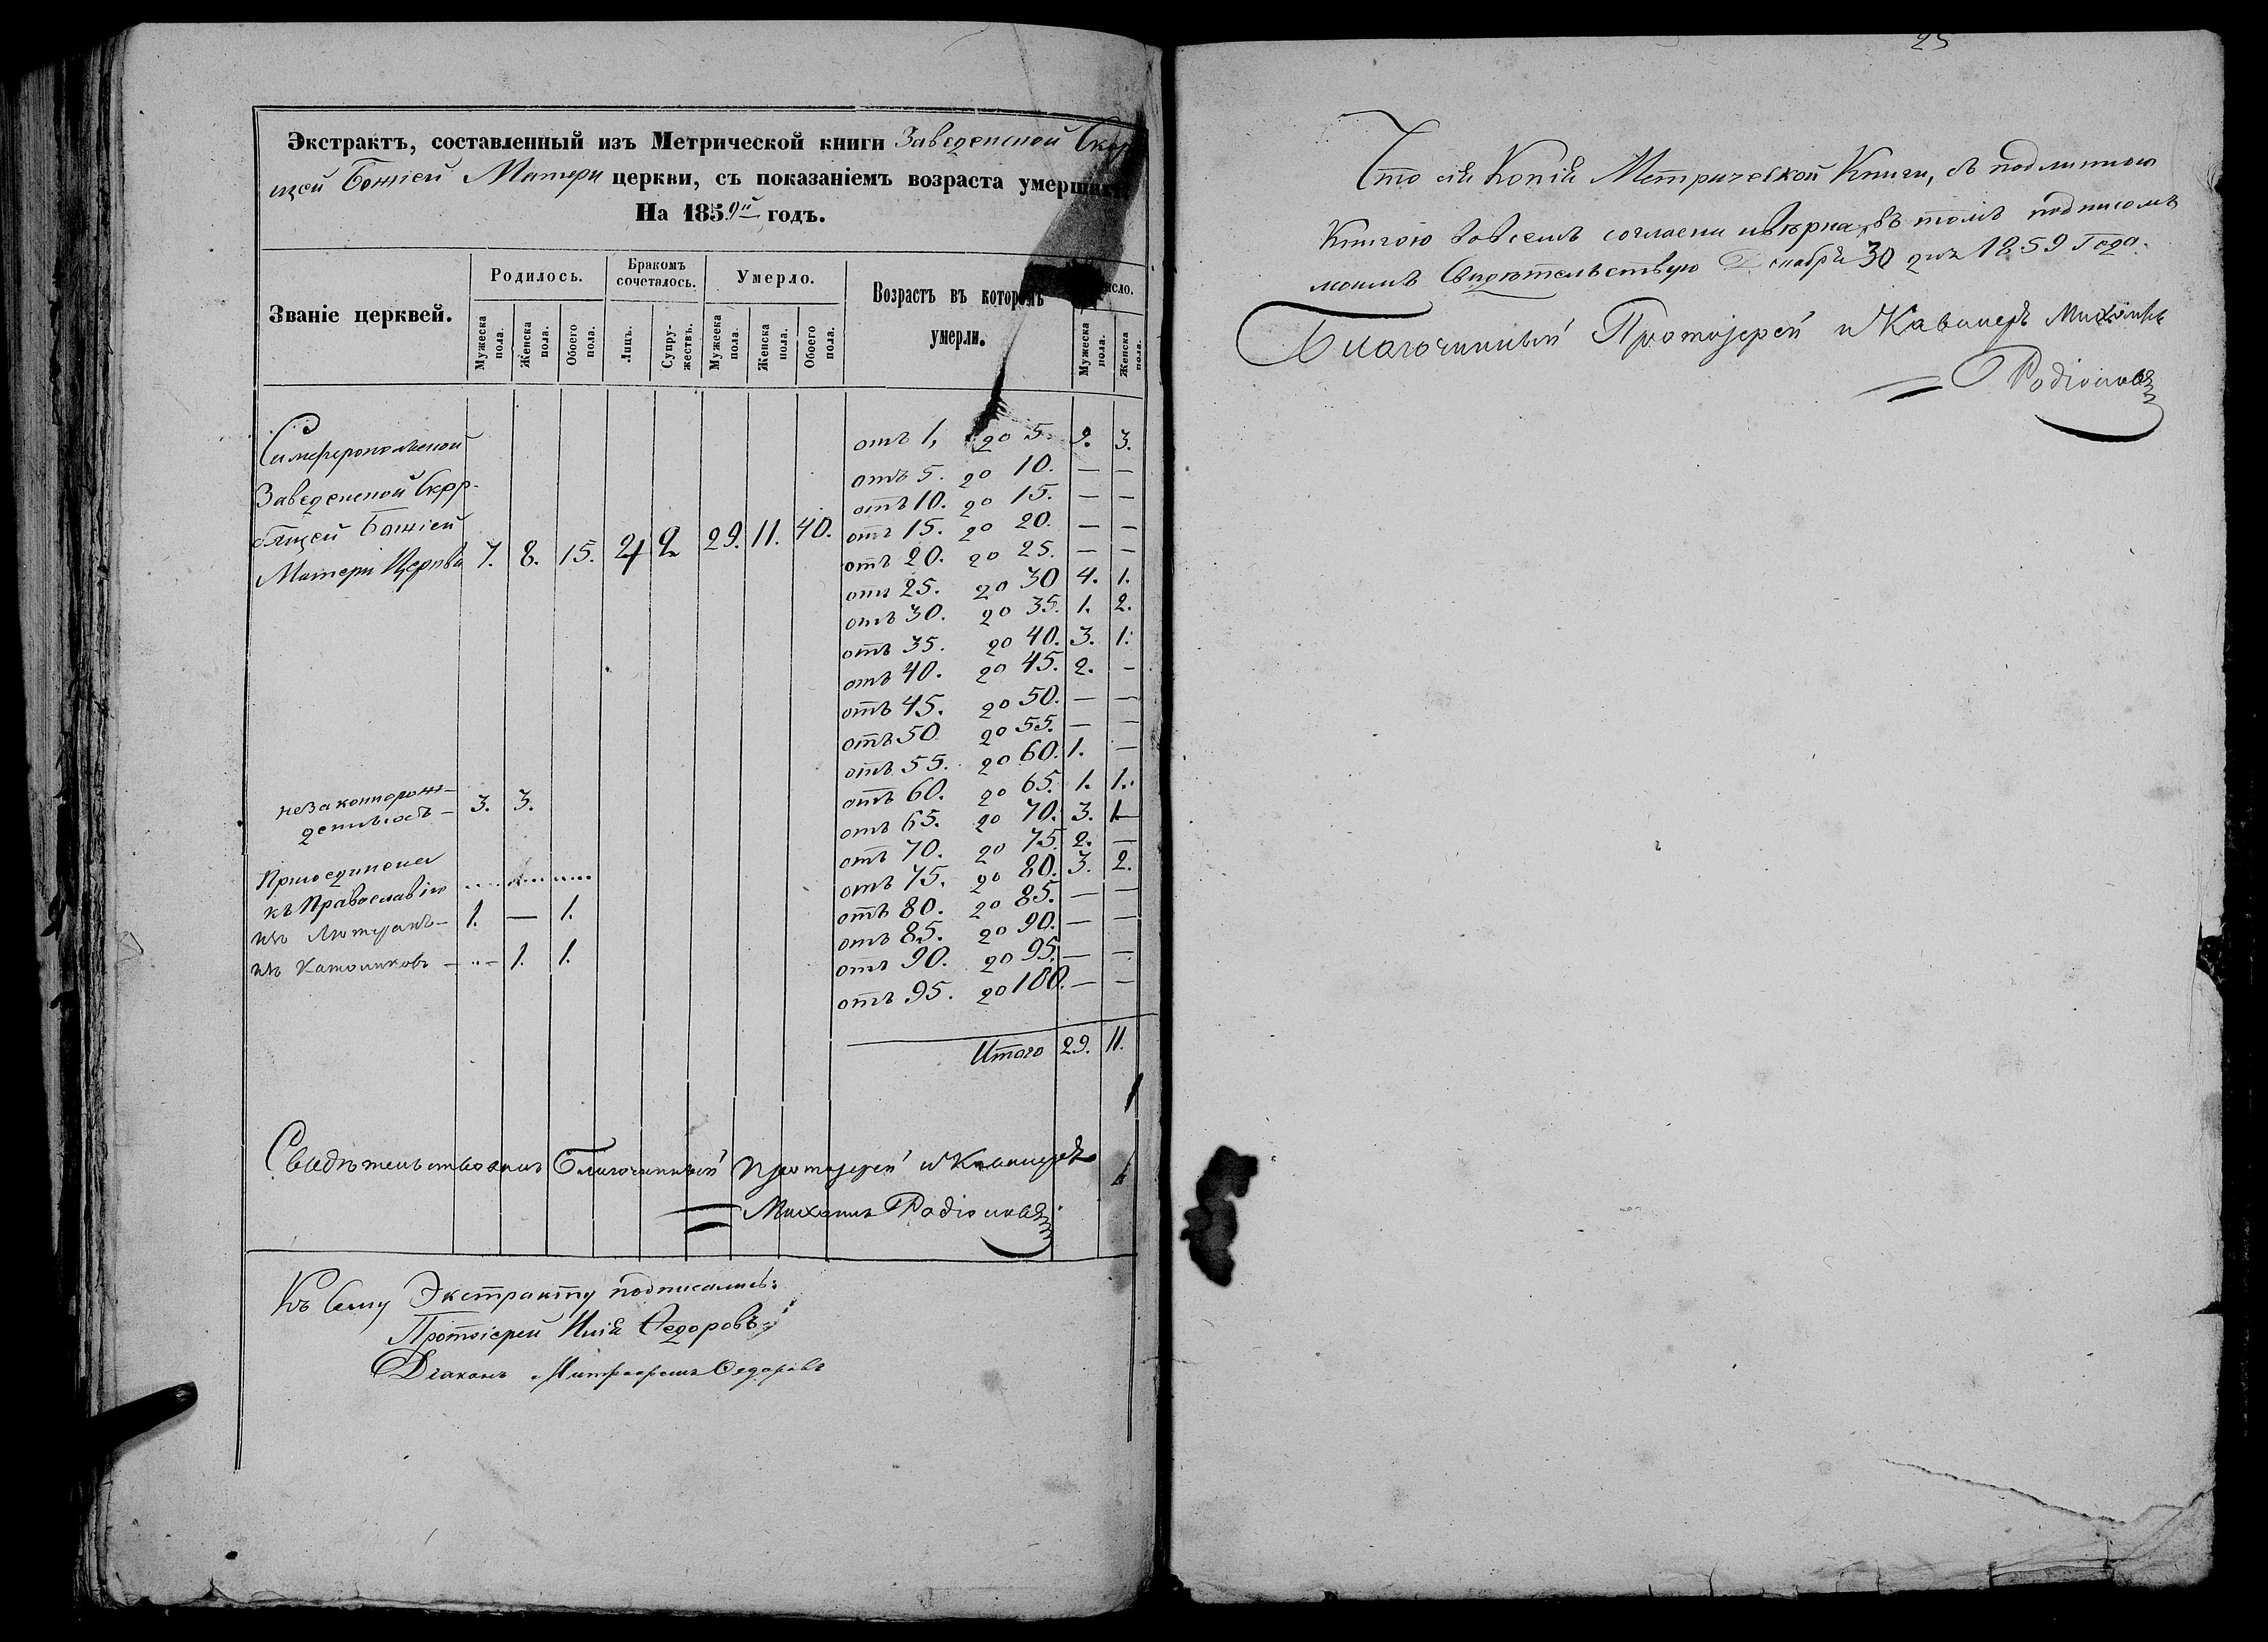 Экстрактъ, составленный изъ Метрической книги Заведенской Скор
щей Божіей Матери церкви, съ показаніемъ возраста умершихъ.
На 1859й годъ.
Званіе церквей.
Родилось.
Бракомъ сочеталось.
Умерло.
Возрастъ въ которомъ умерли.
Число.
Мужеска пола.
Женска пола.
Обоего пола.
Лицъ.
Супружествъ.
Мужеска пола.
Женска пола.
Обоего пола.
Мужеска пола.
Женска пола.
Симферопольской
Заведенской Скор-
бящей Божіей
Матери Церкви 7. 8. 15. 4 2 29. 11. 40.
отъ 1, до 5. 9. 3.
отъ 5. до 10. — —
отъ 10. до 15. — —
отъ 15. до 20. — —
отъ 20. до 25. — —
отъ 25. до 30 4. 1.
отъ 30. до 35. 1. 2.
отъ 35. до 40. 3. 1.
отъ 40. до 45. 2. —
отъ 45. до 50. — —
отъ 50 до 55. — —
отъ 55. до 60. 1. —
отъ 60. до 65. 1. 1.
отъ 65. до 70. 3. 1
отъ 70. до 75. 2. —
отъ 75. до 80. 3. 2.
отъ 80. до 85. — —
отъ 85. до 90. — —
отъ 90. до 95. — —
отъ 95. до 100. — —
Итого 29. 11.
незаконорож-
денныхъ — 3. 3.
Присоединена
къ Православію
изъ Лютеранъ — 1. — 1.
изъ Католиковъ — 1. 1.
Свидѣтельствовалъ Благочинный Протоіерей и Кавалеръ
Михаилъ Родіоновъ
Къ сему Экстракту подписались:
Протоіерей Илія Ѳедоровъ
Діаконъ Митрофанъ Ѳедоровъ
25
Что сія Копія Метрической Книги, съ подлинною
Книгою во всемъ согласна и вѣрна, въ томъ подписомъ
моимъ Свидѣтельствую Декабря 30 дня 1859 Года.
Благочинный Протоіерей и Кавалеръ Михаилъ
Родіоновъ